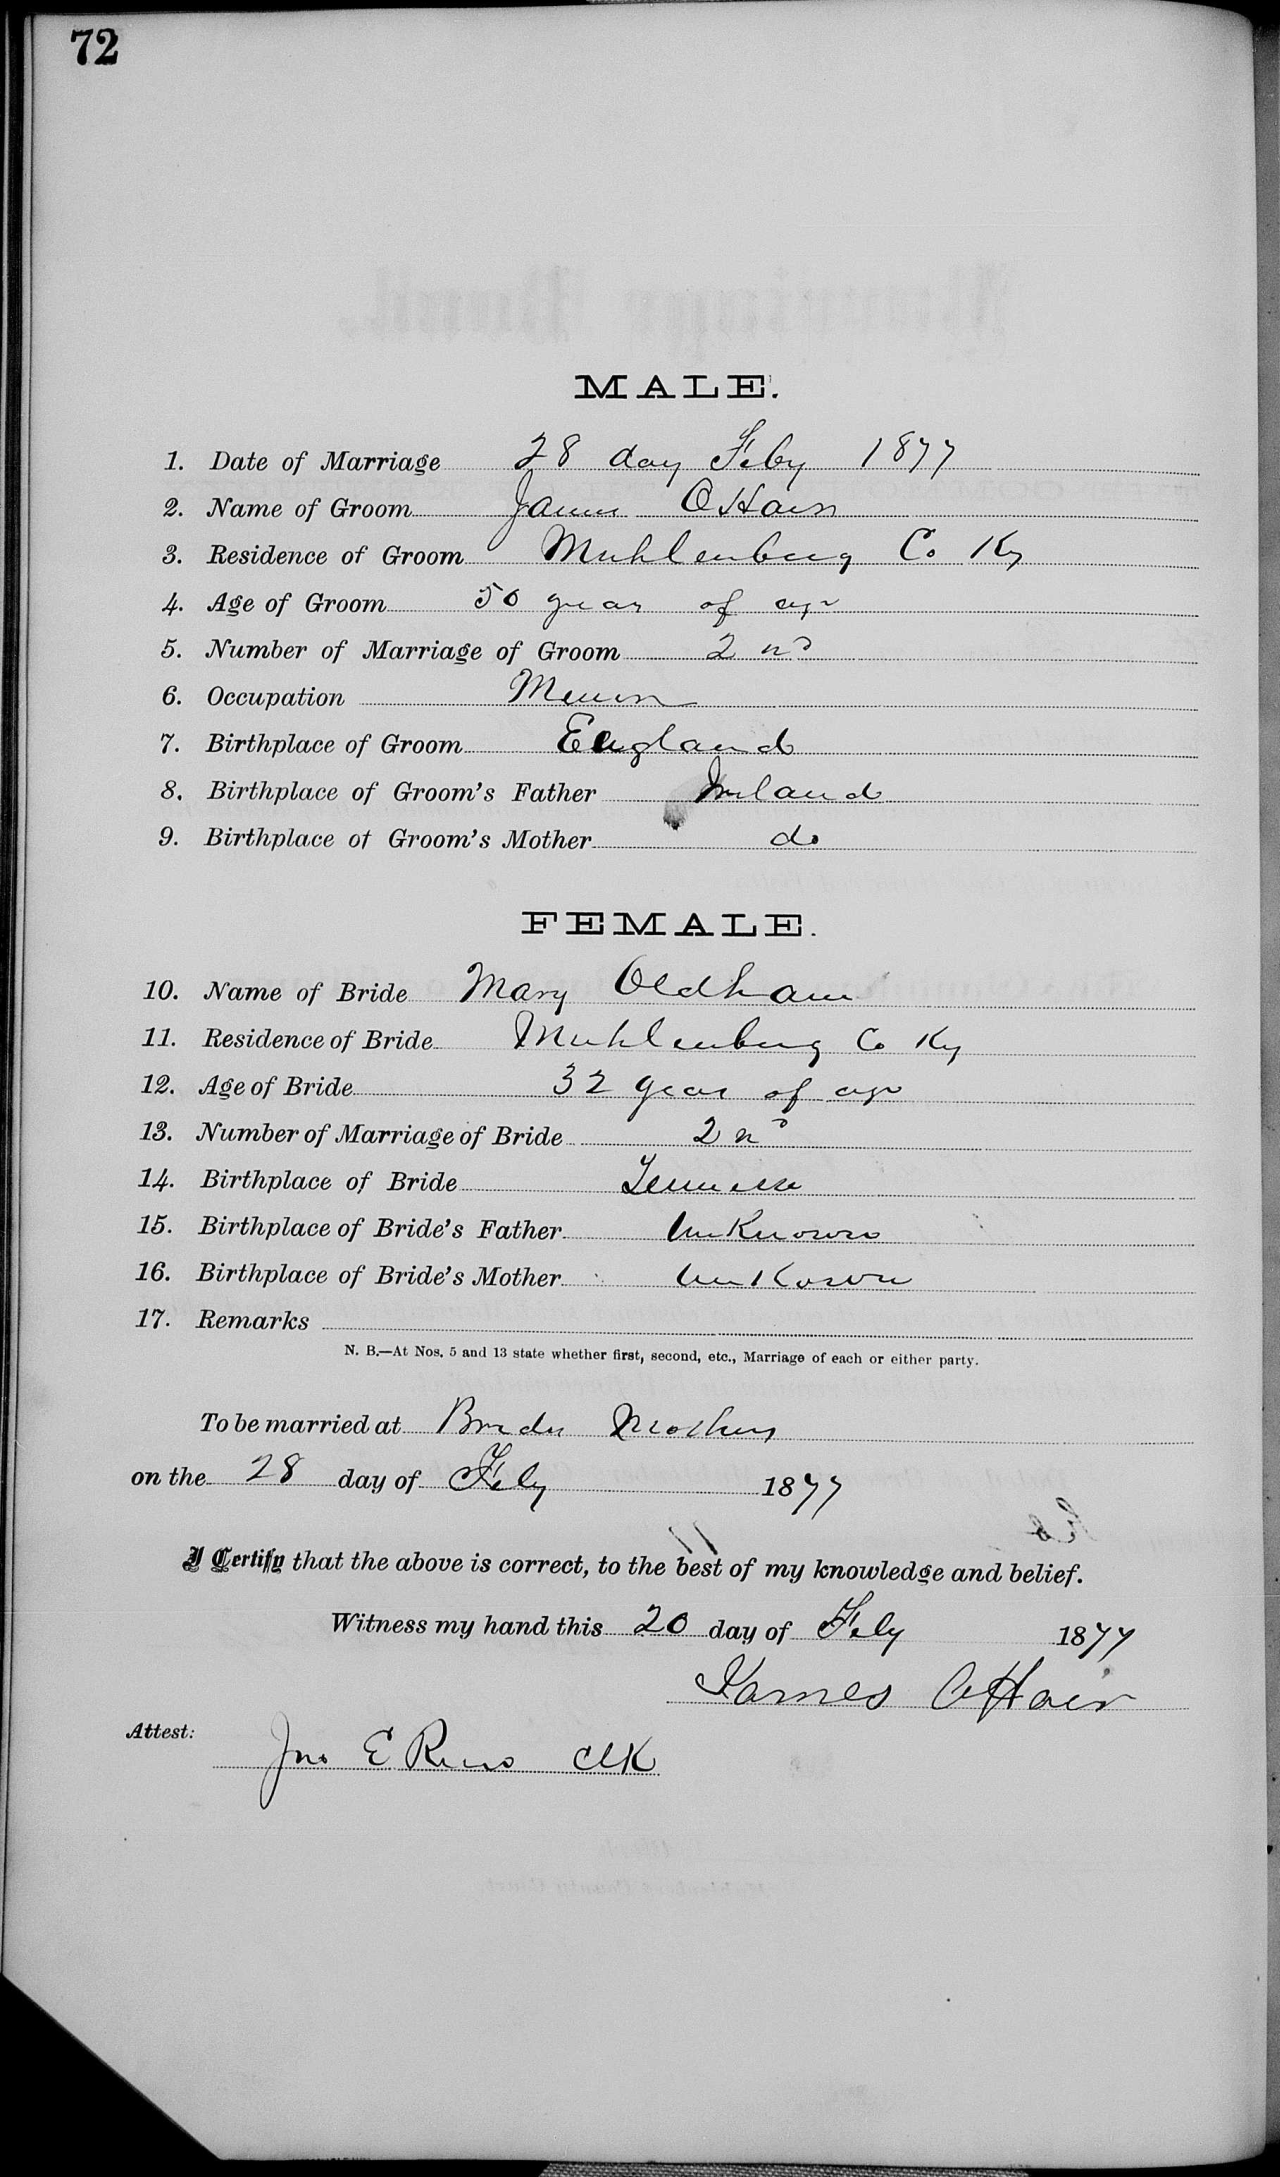 72
MALE.
1. Date of Marriage 28 day Feby 1877
2. Name of Groom James O'Hair
3. Residence of Groom Muhlenburg Co Ky
4. Age of Groom 50 years of age
5. Number of Marriage of Groom 2nd
6. Occupation
7. Birthplace of Groom England
8. Birthplace of Groom's Father Ireland
9. Birthplace of Groom's Mother do
FEMALE.
10. Name of Bride Mary Oldham
11. Residence of Bride Muhlenburg Co Ky
12. Age of Bride 32 years of age
13. Number of Marriage of Bride 2nd
14. Birthplace of Bride Tennessee
15. Birthplace of Bride's Father Unknown
16. Birthplace of Bride's Mother Unknown
17. Remarks
N. B.—At Nos. 5 and 13 state whether first, second, etc., Marriage of each or either party.
To be married at Brides Mothers
on the 28 day of Feby 1877
I Certify that the above is correct, to the best of my knowledge and belief.
Witness my hand this 20 day of Feby 1877
James OHair
Attest:
Jno E. Reno Clk